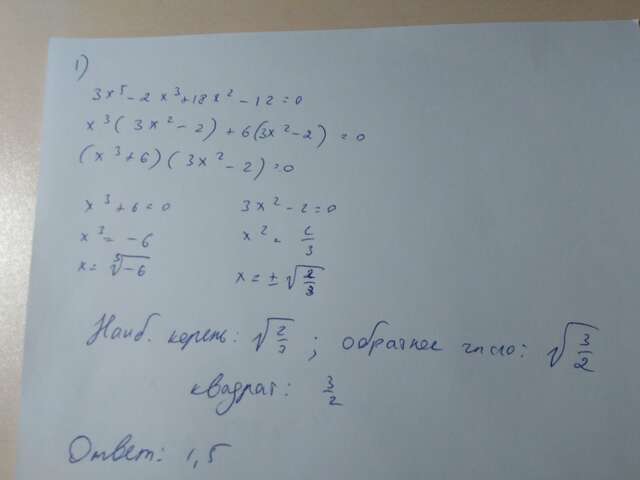 1)
3x⁵ - 2x³ + 18x² - 12 = 0
x³(3x² - 2) + 6(3x² - 2) = 0
(x³ + 6)(3x² - 2) = 0
x³ + 6 = 0 3x² - 2 = 0
x³ = -6 x² = 2/3
x = ∛-6 x = ±√(2/3)
Наиб. корень: √(2/3) ; обратное число: √(3/2)
квадрат: 3/2
Ответ: 1,5